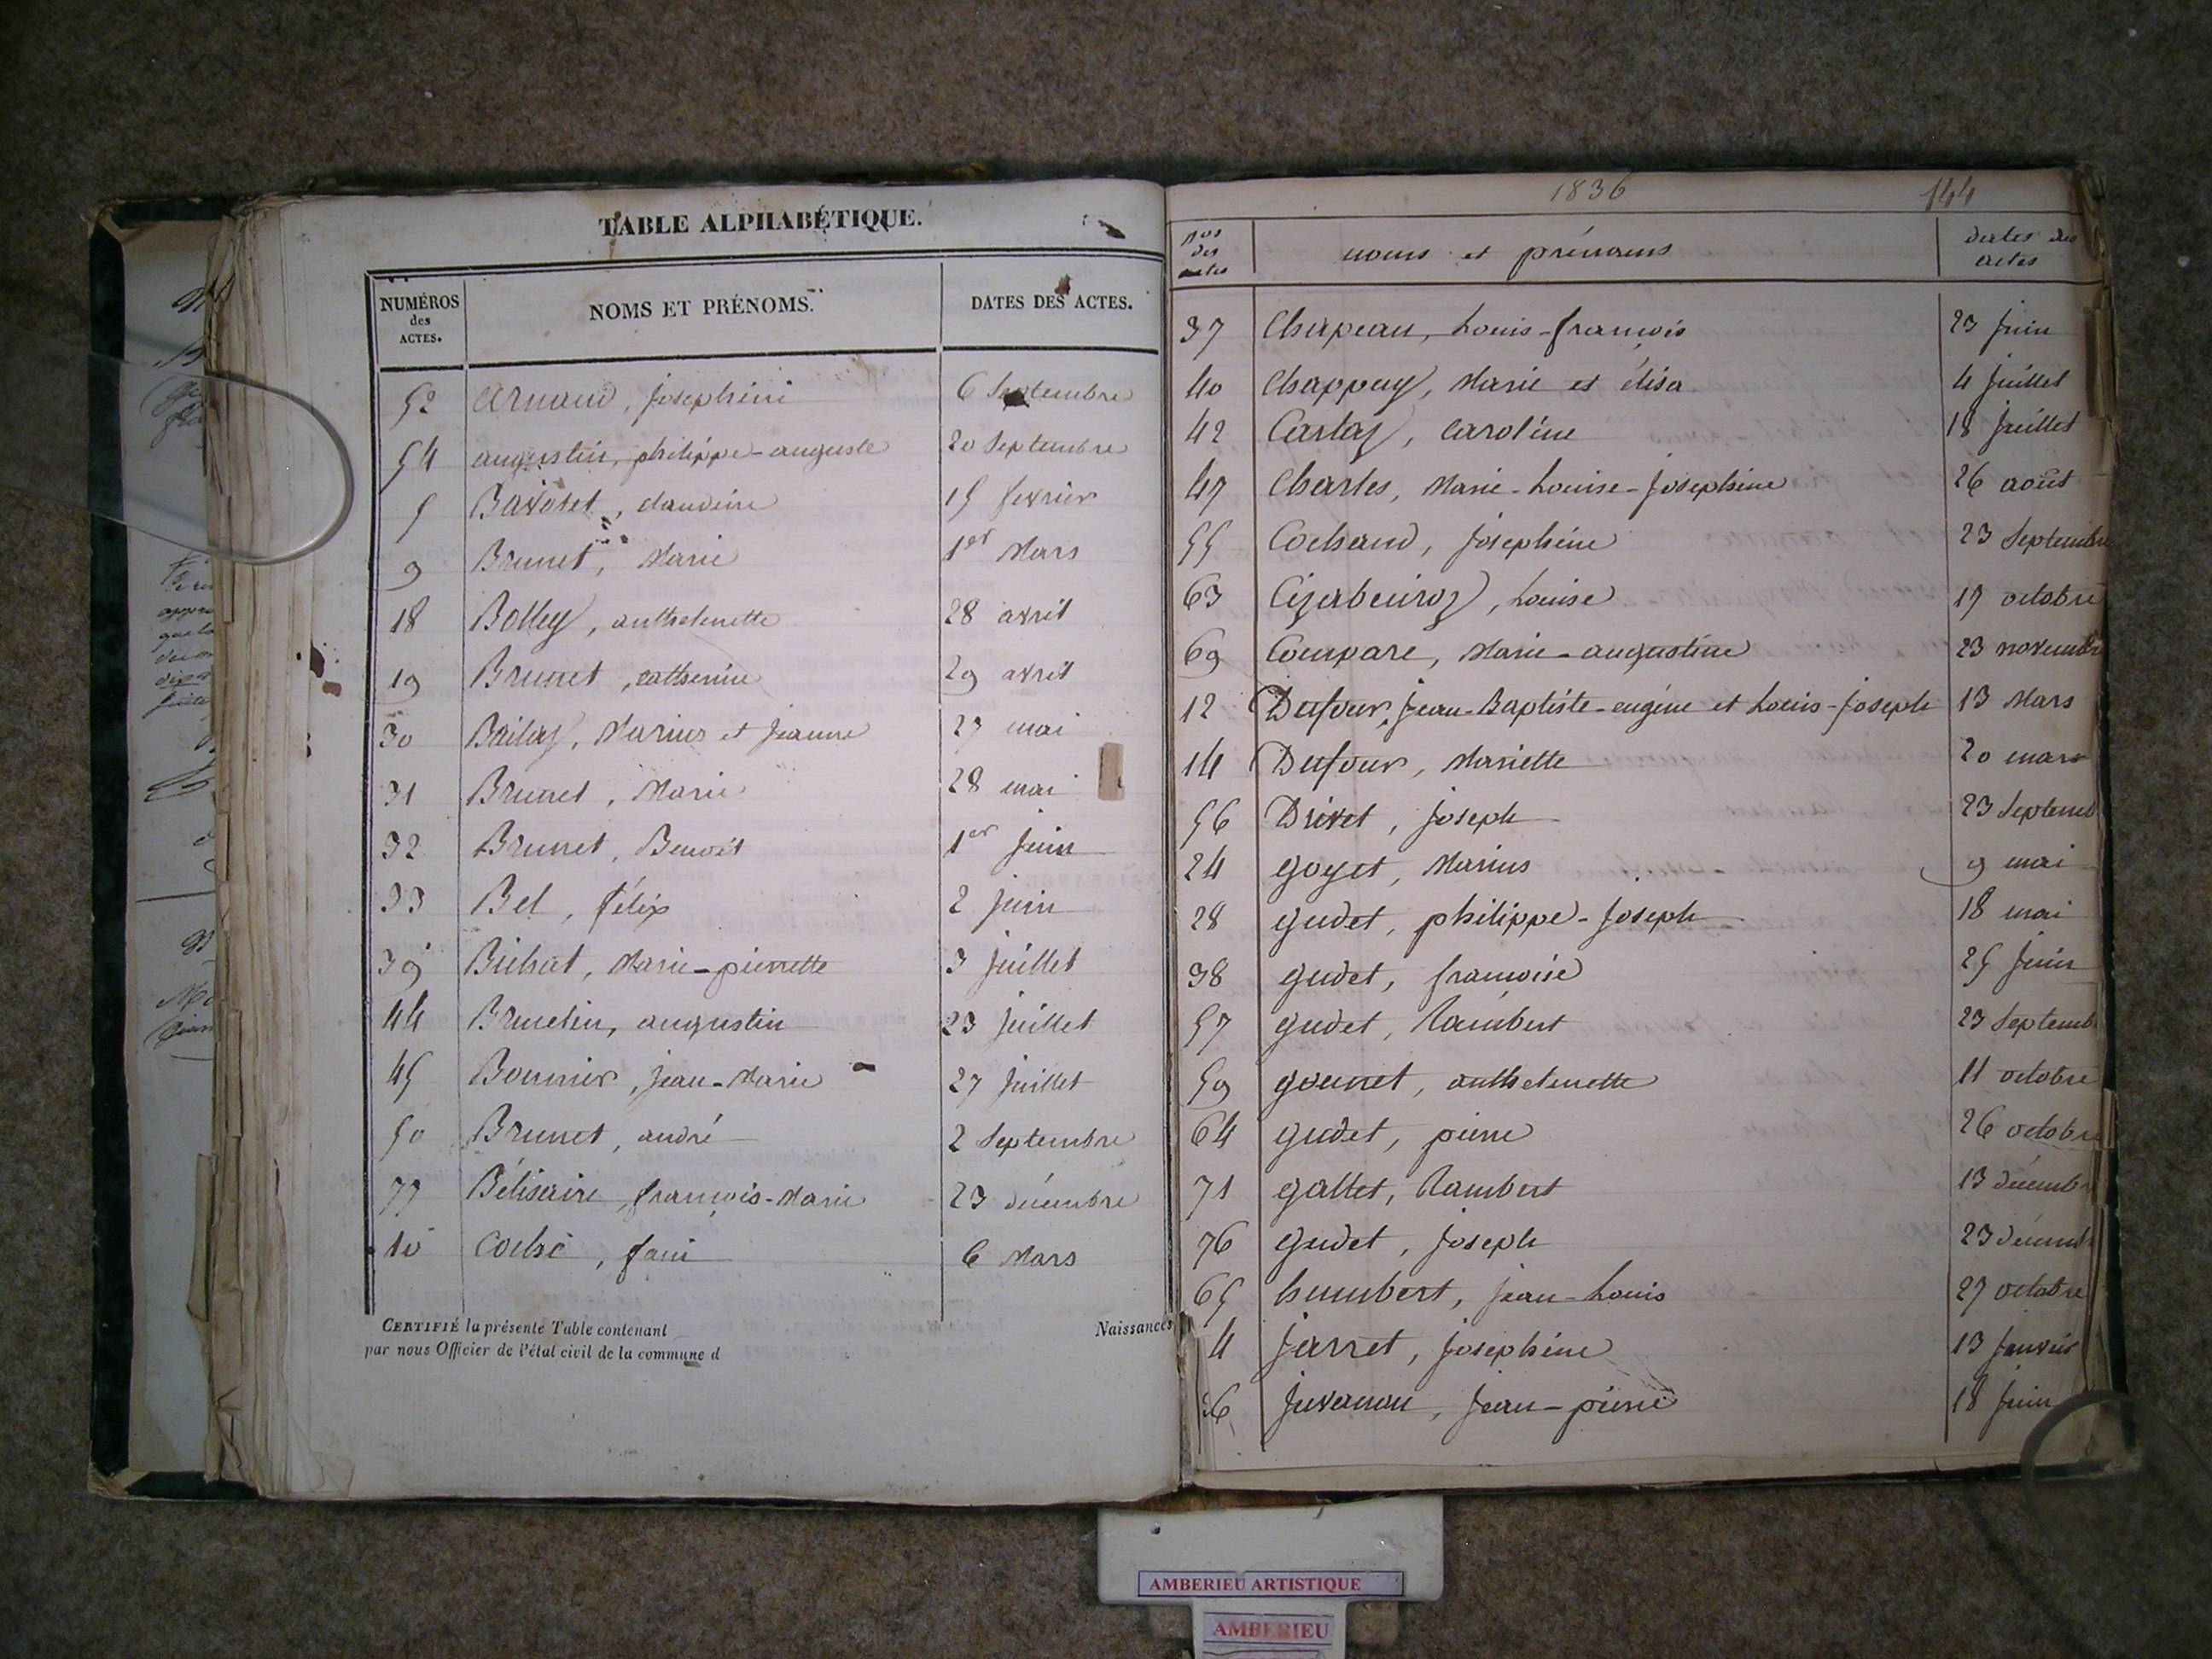 TABLE ALPHABÉTIQUE.
NUMÉROS des ACTES. NOMS ET PRÉNOMS. DATES DES ACTES.
52 Arnaud, joséphine 6 Septembre
54 augustin, philippe-auguste 20 Septembre
5 Bavotet, claudine 15 fevrier
9 Brunet, Marie 1er Mars
18 Bolley, anthelmette 28 avril
19 Brunet, catherine 29 avril
30 Bailly, Marius et jeanne 27 mai
31 Brunet, Marie 28 mai
32 Brunet, Benoît 1er juin
33 Bel, félix 2 juin
39 Bichat, Marie-pierrette 3 juillet
44 Brucelin, augustin 23 juillet
45 Bonnier, jean-Marie 27 juillet
50 Brunet, andré 2 Septembre
77 Bélisaire, françois-Marie 23 décembre
10 Coché, fani 6 Mars
CERTIFIÉ la présente Table contenant Naissances
par nous Officier de l'état civil de la commune d
1836 144
nos des actes noms et prénoms dates des actes
37 Chapeau, Louis-françois 23 juin
40 Chappuy, Marie et élisa 4 juillet
42 Carlaz, caroline 18 juillet
47 Charles, Marie-Louise-joséphine 26 août
55 Cochand, joséphine 23 Septembre
63 Louise 17 octobre
69 Compare, Marie-augustine 23 novembre
12 Dufour, jean-Baptiste-eugène et Louis-joseph 13 Mars
14 Dufour, Mariette 20 mars
56 Drivet, joseph 23 Septemb
24 goyet, Marius 9 mai
28 gudet, philippe-joseph 18 mai
38 gudet, françoise 25 juin
57 gudet, Rambert 23 Septemb
59 gounet, anthelmette 11 octobre
64 gudet, pierre 26 octobre
71 gallet, Rambert 13 décembr
76 gudet, joseph 23 décemb
65 humbert, jean-Louis 27 octobre
4 jarret, joséphine 13 janvier
36 juvanon, jean-pierre 18 juin
AMBERIEU ARTISTIQUE
AMBERIEU